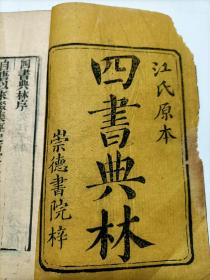 江氏原本
四書典林
崇德書院梓
四書典林序